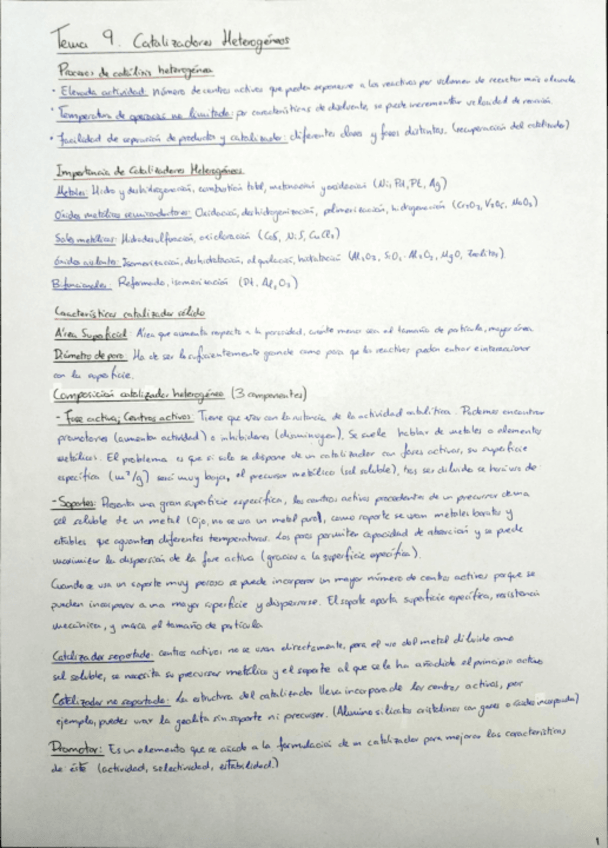 Tema 9. Catalizadores Heterogéneos
Procesos de catálisis heterogénea
· Elevada actividad: número de centros activos que pueden exponerse a los reactivos por volumen de reactor más elevado
· Temperatura de operación no limitada: por características de disolvente, se puede incrementar velocidad de reacción.
· Facilidad de separación de producto y catalizador: diferentes clases y fases distintas. (recuperación del catalizador)
Importancia de Catalizadores Heterogéneos
Metales: Hidro y deshidrogenación, combustión total, metanación y oxidación (Ni, Pd, Pt, Ag)
Óxidos metálicos semiconductores: Oxidación, deshidrogenización, polimerización, hidrogenación (Cr2O3, V2O5, MoO3)
Sales metálicas: Hidrodesulfuración, oxicloración (CoS, NiS, CuCl2)
Óxidos aislantes: Isomerización, deshidratación, alquilación, hidratación (Al2O3, SiO2·Al2O3, MgO, Zeolitas)
Bifuncionales: Reformado, isomerización (Pt, Al2O3)
Características catalizador sólido
Área Superficial: Área que aumenta respecto a la porosidad, cuanto menor sea el tamaño de partícula, mayor área.
Diámetro de poro: Ha de ser lo suficientemente grande como para que los reactivos puedan entrar e interaccionar
con la superficie.
Composición catalizador heterogéneo (3 componentes)
- Fase activa; Centros activos: Tiene que ver con la naturaleza de la actividad catalítica. Podemos encontrar
promotores (aumentan actividad) o inhibidores (disminuyen). Se suele hablar de metales o elementos
metálicos. El problema es que si solo se dispone de un catalizador con fases activas, su superficie
específica (m²/g) será muy baja, el precursor metálico (sal soluble), tras ser diluido se
- Soportes: Presenta una gran superficie específica, los centros activos procedentes de un precursor de una
sal soluble de un metal (Ojo, no se usa un metal puro), como soporte se usan metales baratos y
estables que aguanten diferentes temperaturas. Los poros permiten capacidad de absorción y se puede
maximizar la dispersión de la fase activa (gracias a la superficie específica).
Cuando se usa un soporte muy poroso se puede incorporar un mayor número de centros activos porque se
pueden incorporar a una mayor superficie y dispersarse. El soporte aporta superficie específica, resistencia
mecánica, y marca el tamaño de partícula.
Catalizador soportado: centros activos no se usan directamente, para el uso del metal diluido como
sal soluble, se necesita su precursor metálico y el soporte al que se le ha añadido el principio activo
Catalizador no soportado: La estructura del catalizador lleva incorporado los centros activos, por
ejemplo, puedes usar la zeolita sin soporte ni precursor. (Alumino silicatos cristalinos con incorporados)
Promotor: Es un elemento que se añade a la formulación de un catalizador para mejorar las características
de éste (actividad, selectividad, estabilidad.)
1